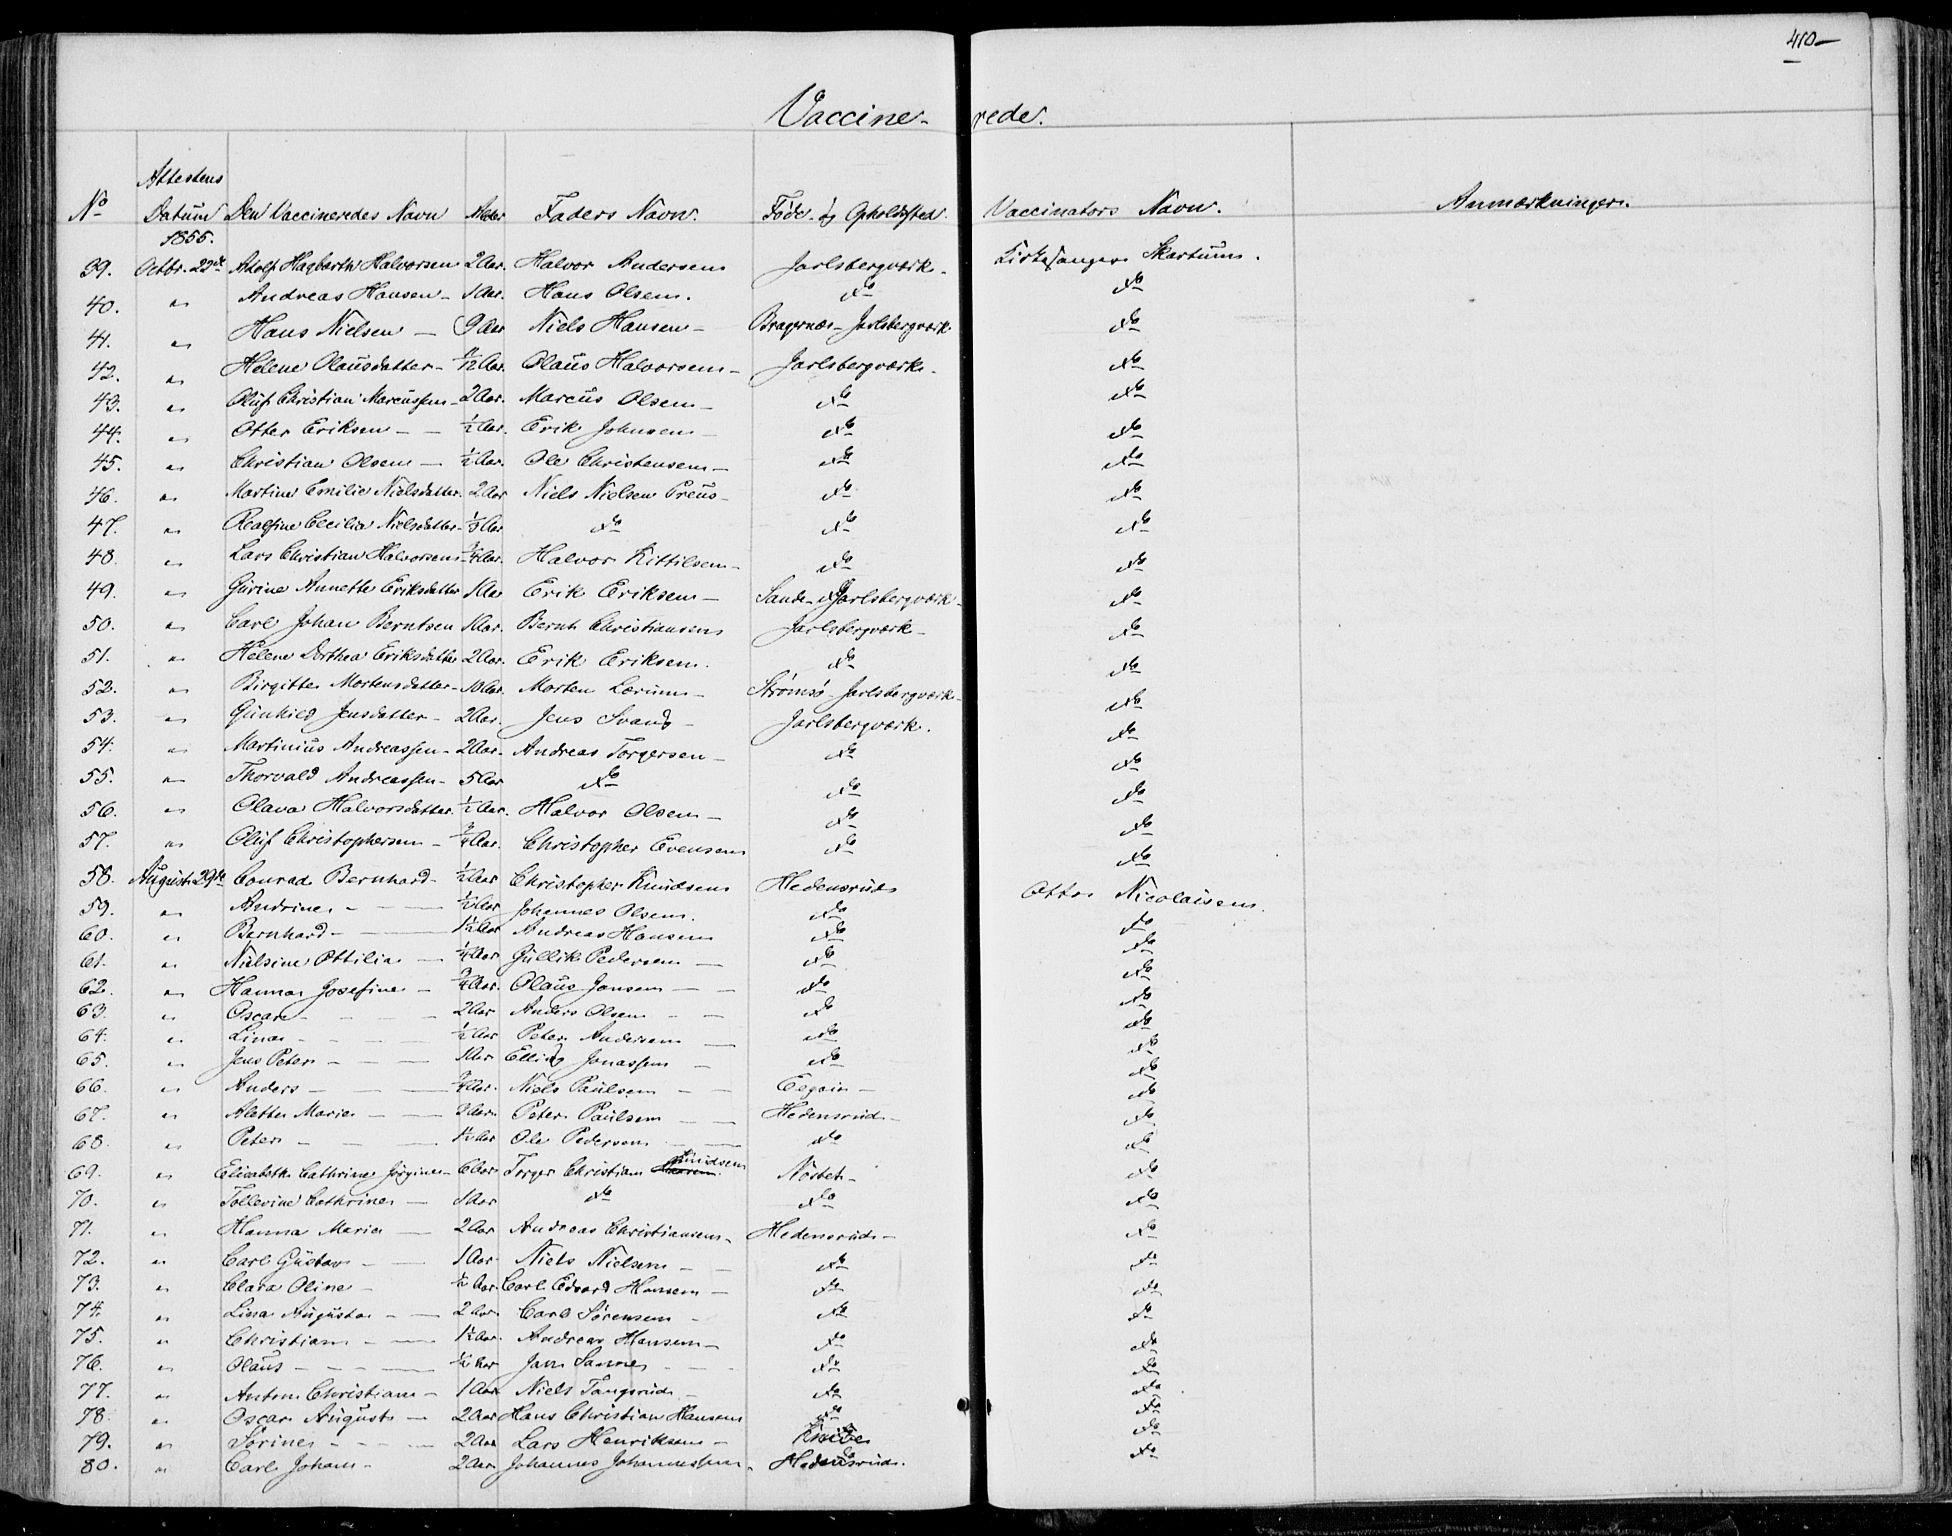 410-
Vaccine- rede.
No Attestens Datum Den Vaccineredes Navn Alder Faders Navn. Føde- og Opholdssted. Vaccinators Navn. Anmærkninger.
1855.
39. Octbr. 22de Adolf Hagbarth Halvorsen 2 Aar. Halvor Andersen Jarlsbergværk. Kirkesanger Skartum.
40. " Andreas Hansen - 1 Aar. Hans Olsen. do do
41. " Hans Nielsen - 9 Aar Niels Hansen - Bragernæs - Jarlsbergværk do
42. " Helene Olausdatter - 11/12 Aar. Olaus Halvorsen - Jarlsbergværk. do
43. " Oluf Christian Marcussen - 2 Aar. Marcus Olsen - do do
44. " Otter Eriksen - - 1/2 Aar. Erik Johnsen - do do
45. " Christian Olsen - 1/2 Aar. Ole Christensen - do do
46. " Martine Emilie Nielsdatter. 2 Aar Niels Nielsen Preus - do do
47. " Cecilia Nielsdatter - 1/3 Aar do do do
48. " Lars Christian Halvorsen - 3/4 Aar. Halvor Kittilsen - do do
49. " Gurine Annette Eriksdatter 1 Aar Erik Eriksen - Sande - Jarlsbergværk - do
50. " Carl Johan Berntsen 1 Aar. Bernt Christiansen Jarlsbergværk - do
51. " Helene Dorthea Eriksdatter 2 Aar. Erik Eriksen. do do
52. " Birgitte Mortensdatter - 10 Aar. Morten Lærum - Strømsø - Jarlsbergværk - do
53. " Gunhild Jensdatter - 2 Aar. Jens Svang - Jarlsbergværk. do
54. " Martinius Andreassen - 2 Aar. Andreas Torgersen - do do
55. " Thorvald Andreassen - 5 Aar do do do
56. " Olava Halvorsdatter. 1/2 Aar. Halvor Olsen - do do
57. " Oluf Christophersen - 3/4 Aar. Christopher Evensen do do
58. August 29de Conrad Bernhard - 1/2 Aar Christopher Knudsen Hedensrud Otto Nicolaisen.
59. " Andrine - - 1/2 Aar Johannes Olsen. do do
60. " Bernhard - - 1 1/2 Aar Andreas Hansen do do
61. " Nielsine Ottilia - 1/4 Aar Gullik Pedersen - do do
62. " Hanna Josefine - 3/4 Aar. Olaus Jansen - - do do
63. " Oscar - - - 2 Aar Anders Olsen - - do do
64. " Lina - - - 1/2 Aar Peter Andersen - do do
65. " Jens Peter - - 1 Aar Elling Jonassen - do do
66. " Anders - - 3/4 Aar. Niels Paulsen - - do
67. " Alette Marie - - 3 Aar. Peter Paulsen - - Hedensrud - do
68. " Peter - - 1 1/2 Aar Ole Pedersen - - do do
69. " Elisabeth Cathrine Jørgine - 6 Aar Torger Christian Knudsen Nøsteb - do
70. " Tollevine Cathrine - 1 Aar do do do
71. " Hanna Marie - 2 Aar Andreas Christiansen - Hedensrud - do
72. " Carl Gustav - - 1 Aar Niels Nielsen - - do do
73. " Clara Oline - 1/2 Aar. Carl Edvard Hansen - do do
74. " Lina Augusta - - 2 Aar Carl Sørensen - do do
75. " Christian - - 1 1/2 Aar. Andreas Hansen - do do
76. " Olaus - - - 1/2 Aar Jan Sanne - - do do
77. " Anton Christian - 1 Aar Niels Tangerud - do do
78. " Oscar August - 2 Aar Hans Christian Hansen do do
79. " Sørine - - - 2 Aar Lars Henriksen - do
80. " Carl Johan - 2 Aar Johannes Johannessen - Hedensrud. do